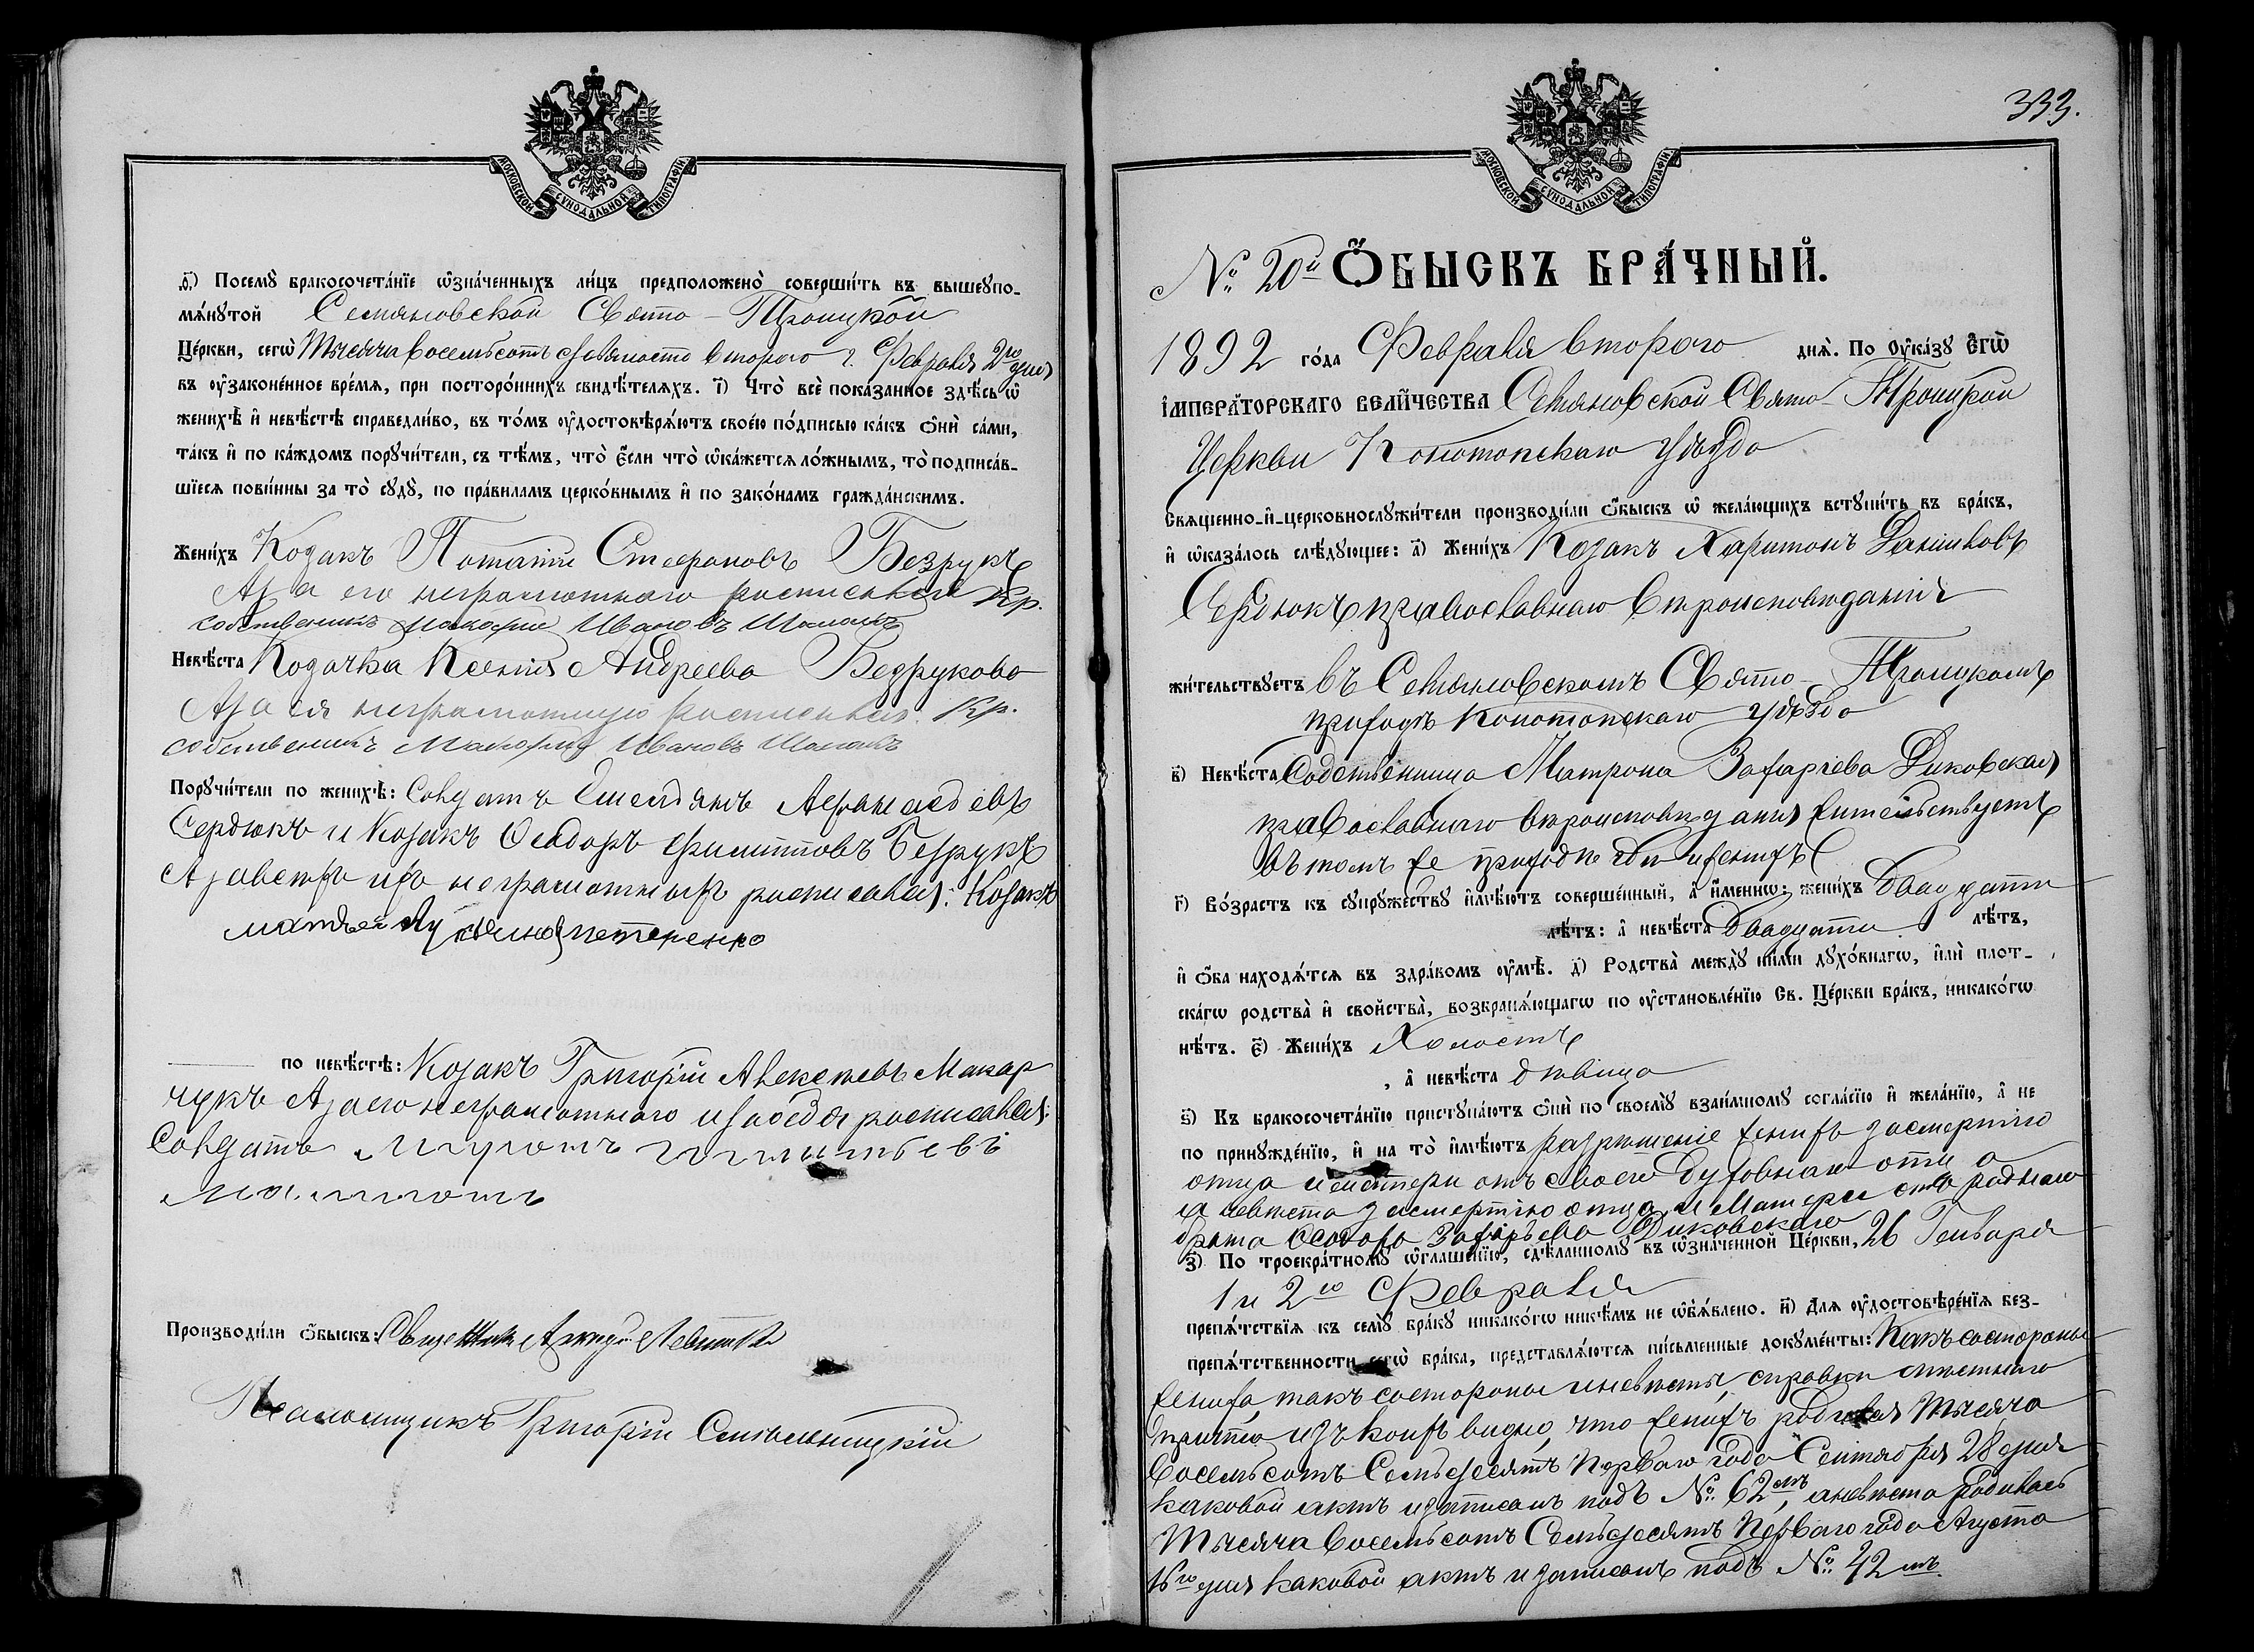 МОСКОВСКОЙ СѴНОДАЛЬНОЙ ТИПОГРАФІИ
ѳ҃) Посемꙋ̀ бракосочета́нїе ѡ҆зна́ченныхъ ли́цъ предположено̀ соверши́ть въ вышеꙋпо-
мѧ́нꙋтой Семяновской Свято-Троицкой
Це́ркви, сегѡ̀ Тысяча восемьсотъ девяносто второго г. Февраля 2го дня
въ ᲂу҆законе́нное вре́мѧ, при посторо́ннихъ свидѣ́телѧхъ. і҃) Что̀ всѐ пока́занное здѣ́сь ѡ҆
женихѣ̀ и҆ невѣ́стѣ справедли́во, въ то́мъ ᲂу҆достовѣрѧ́ютъ свое́ю по́дписью ка́къ ѻ҆нѝ са́ми,
та́къ и҆ по ка́ждомъ порꙋчи́тели, съ тѣ́мъ, что̀ є҆́сли что̀ ѡ҆ка́жетсѧ ло́жнымъ, то̀ подписа́в-
шїесѧ пови́нны за то̀ сꙋдꙋ̀, по пра́виламъ церко́внымъ и҆ по зако́намъ гражда́нскимъ.
Жени́хъ Козакъ Потапій Стефановъ Безрукъ
А за его неграмотного росписался Кр.
собственникъ Макофій Ивановъ
Невѣ́ста Козачка Ксенія Андреева Безрукова
А за ея неграмотную росписался Кр.
собственникъ Ивановъ
Порꙋчи́тели по женихѣ̀: Солдатъ Емельянъ Афанасіевъ
Сердюкъ и Козакъ Феодоръ Филипповъ Безрукъ
А за васъ ихъ неграмотныхъ росписался: Козакъ
матвей петренко
по невѣ́стѣ: Козакъ Григорій Алексѣевъ Макар
чукъ А за его неграмотного и за себя росписался:
Солдатъ
Производи́ли ѻ҆́быскъ: Священникъ Левитскій
Псаломщикъ Григорій
333.
МОСКОВСКОЙ СѴНОДАЛЬНОЙ ТИПОГРАФІИ
№ 20й Ѻ҆́БЫСКЪ БРА́ЧНЫЙ.
1892 го́да Февраля второго днѧ̀. По Оу҆ка́зꙋ Є҆гѡ̀
І҆МПЕРА́ТОРСКАГО ВЕЛИ́ЧЕСТВА Семяновской Свято-Троицкой
Церкви Конотопскаго уѣзда
Свѧще́нно-и҆-церковнослꙋжи́тели производи́ли ѻ҆́быскъ ѡ҆ жела́ющихъ встꙋпи́ть въ бра́къ,
и҆ ѡ҆каза́лось слѣ́дꙋющее: а҃) Жени́хъ Козакъ Харитонъ Даниловъ
Сердюкъ православнаго вѣроисповѣданія
жи́тельствꙋетъ въ Семяновскомъ Свято-Троицкомъ
приходѣ Конотопскаго уѣзда
в҃) Невѣ́ста Собственница Матрона Захаріева Диковская
православнаго вѣроисповѣданія жительствуетъ
въ томъ же приходѣ гдѣ и женихъ
г҃) Во́зрастъ къ сꙋпрꙋ́жествꙋ и҆мѣ́ютъ соверше́нный, а҆ и҆́меннѡ: жени́хъ двадцати
лѣ́тъ: а҆ невѣ́ста двадцати лѣ́тъ,
и҆ ѻ҆́ба нахо́дѧтсѧ въ здра́вомъ ᲂу҆мѣ̀. д҃) Родства̀ междꙋ̀ ни́ми дꙋхо́внагѡ, и҆лѝ плот-
ска́гѡ родства̀ и҆ сво́йства̀, возбранѧ́ющагѡ по ᲂу҆становле́нїю Св. Це́ркви бра́къ, никако́гѡ
нѣ́тъ. є҃) Жени́хъ Холостъ
, а҆ невѣ́ста дѣвица
ѕ҃) Къ бракосочета́нїю пристꙋпа́ютъ ѻ҆нѝ по своемꙋ̀ взаи́мномꙋ согла́сїю и҆ жела́нїю, а҆ не
по принꙋжде́нїю, и҆ на то̀ и҆мѣ́ютъ разрѣшеніе женихъ за смертію
отца и матери отъ своего духовнаго отца
а невѣста за смертію отца и Матери отъ роднаго
брата Феодора Захарьева Диковскаго
з҃) По троекра́тномꙋ ѡ҆глаше́нїю, сдѣ́ланномꙋ въ ѡ҆зна́ченной Це́ркви, 26 Генваря
1 и 2го Февраля
препѧ́тствїѧ къ семꙋ̀ бра́кꙋ никако́гѡ никѣ́мъ не ѡ҆б̾ѧ́влено. и҃) Длѧ ᲂу҆достовѣре́нїѧ без-
препѧ́тственности сегѡ̀ бра́ка, представлѧ́ютсѧ пи́сьменные докꙋме́нты: Какъ со стороны
жениха, такъ со стороны и невѣсты справки мѣстнаго
причта, изъ коихъ видно, что женихъ родился Тысяча
восемьсотъ Семьдесятъ перваго года Сентября 28 дня
каковой актъ и записанъ подъ № 62мъ, а невѣста родилась
Тысяча восемьсотъ Семьдесятъ перваго года Августа
16го дня каковой актъ и записанъ подъ № 42мъ.